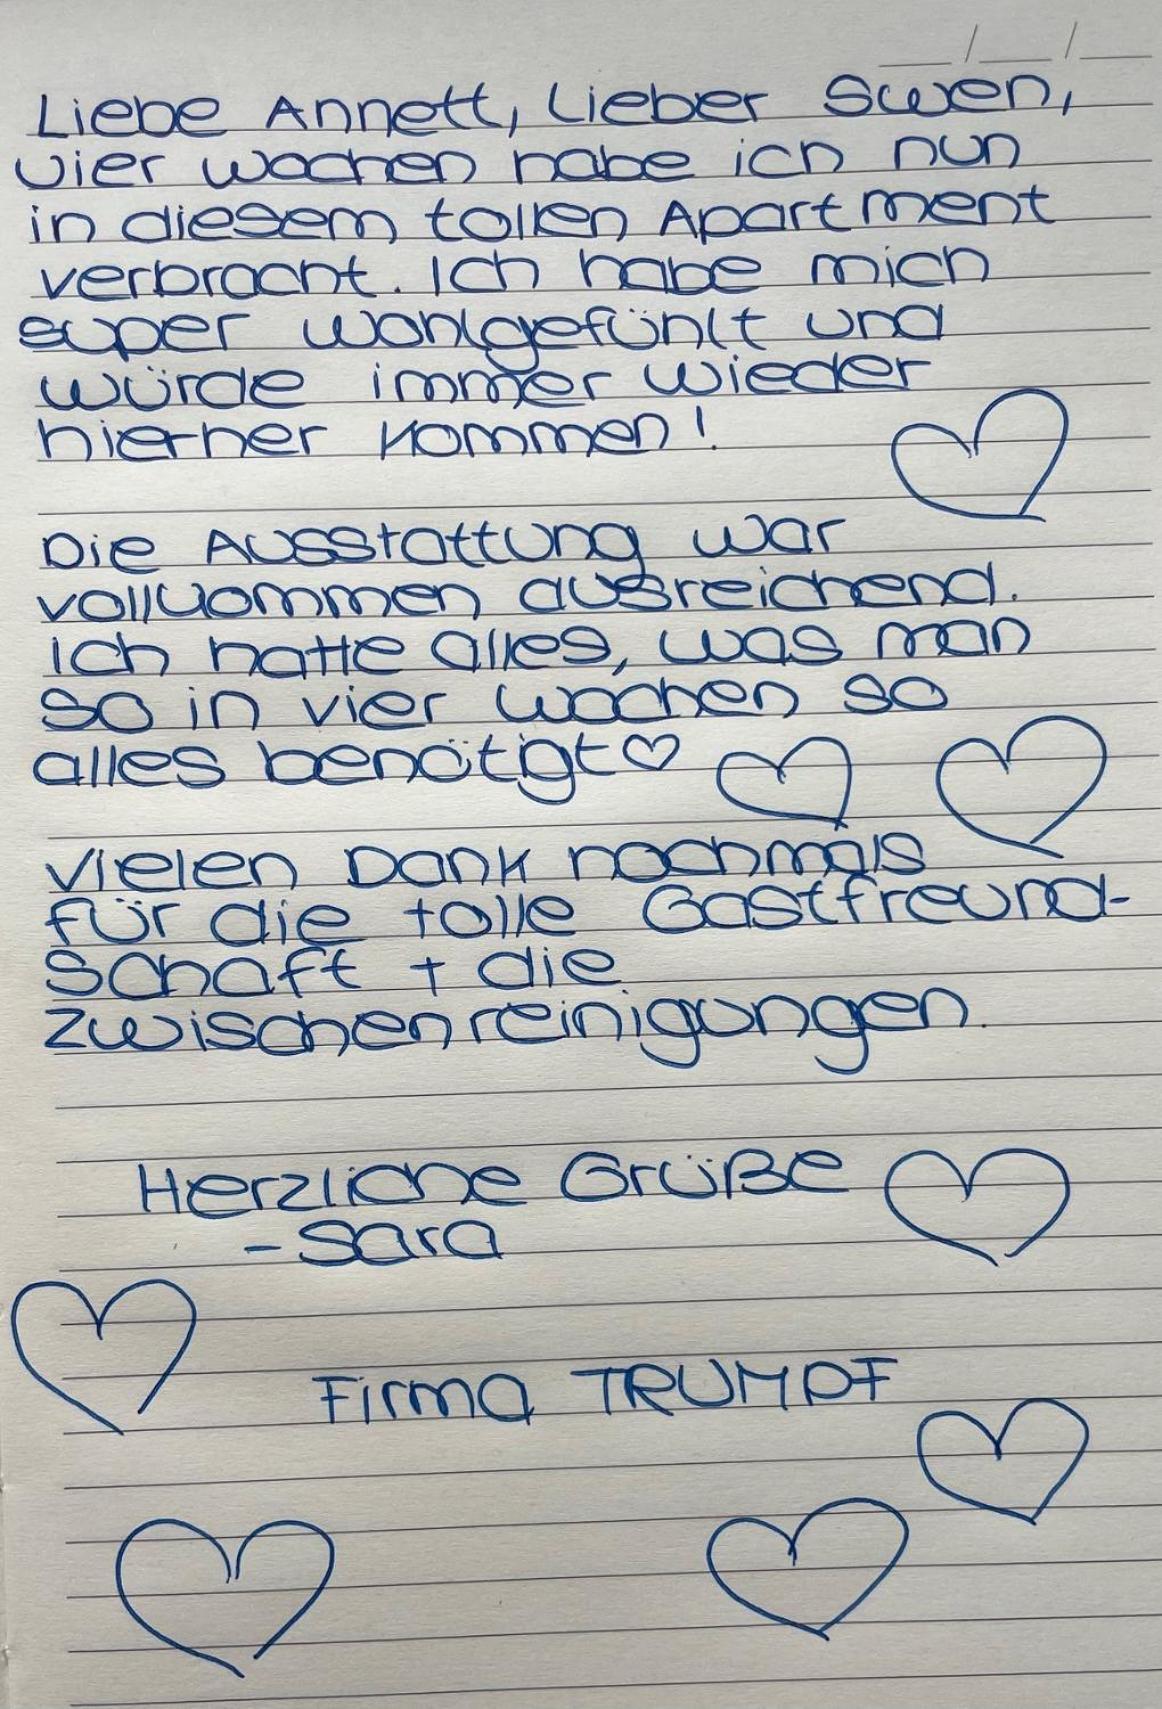 Liebe Annett, Lieber Swen,
vier Wochen habe ich nun
in diesem tollen Apartment
verbracht. Ich habe mich
super wohlgefühlt und
würde immer wieder
hierher kommen!
Die Ausstattung war
vollkommen ausreichend.
Ich hatte alles, was man
so in vier Wochen so
alles benötigt♡
Vielen Dank nochmals
für die tolle Gastfreund-
schaft + die
Zwischenreinigungen.
Herzliche Grüße
- Sara
Firma TRUMPF